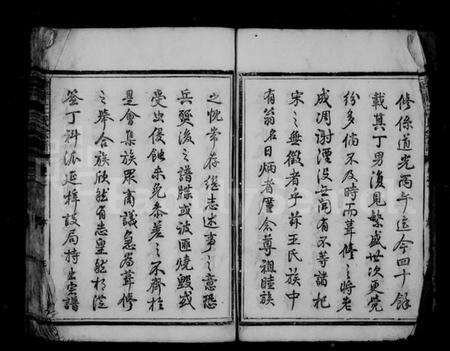 修係道光丙午迄今四十餘
載其丁男復見繁盛世次更覺
紛多倘不及時而葺修之將老
成凋謝湮沒無聞有不等諸杞
宋之無徵者乎茲王氏族中
有翁名曰炳者廑念尊祖睦族
之忱常存繼志述事之意恐
兵燹後之譜牒或被匪燒毀或
受虫侵蝕未免參差之不齊於
是會集族眾商議急為葺修
之舉合族欣然有志皇然相從
簽丁科派延輯設局持老宗譜